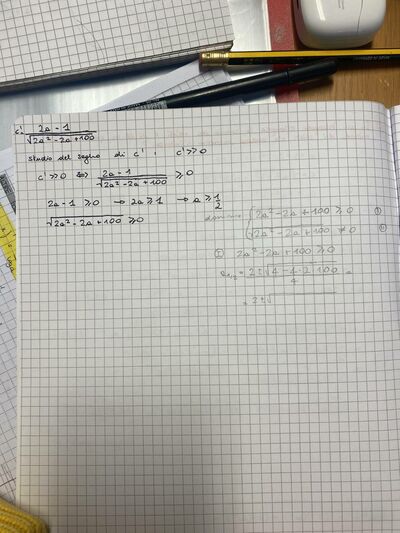 c' = (2a - 1) / √(2a² - 2a + 100)
Studio del segno di c' : c' ≥ 0
c' ≥ 0 ⇔ (2a - 1) / √(2a² - 2a + 100) ≥ 0
2a - 1 ≥ 0 → 2a ≥ 1 → a ≥ 1/2
√(2a² - 2a + 100) ≥ 0
dominio { 2a² - 2a + 100 ≥ 0 Ⓘ
√(2a² - 2a + 100) ≠ 0 Ⓘ Ⓘ
Ⓘ 2a² - 2a + 100 ≥ 0
a₁,₂ = (2 ± √(4 - 4·2·100)) / 4 =
= 2 ± √